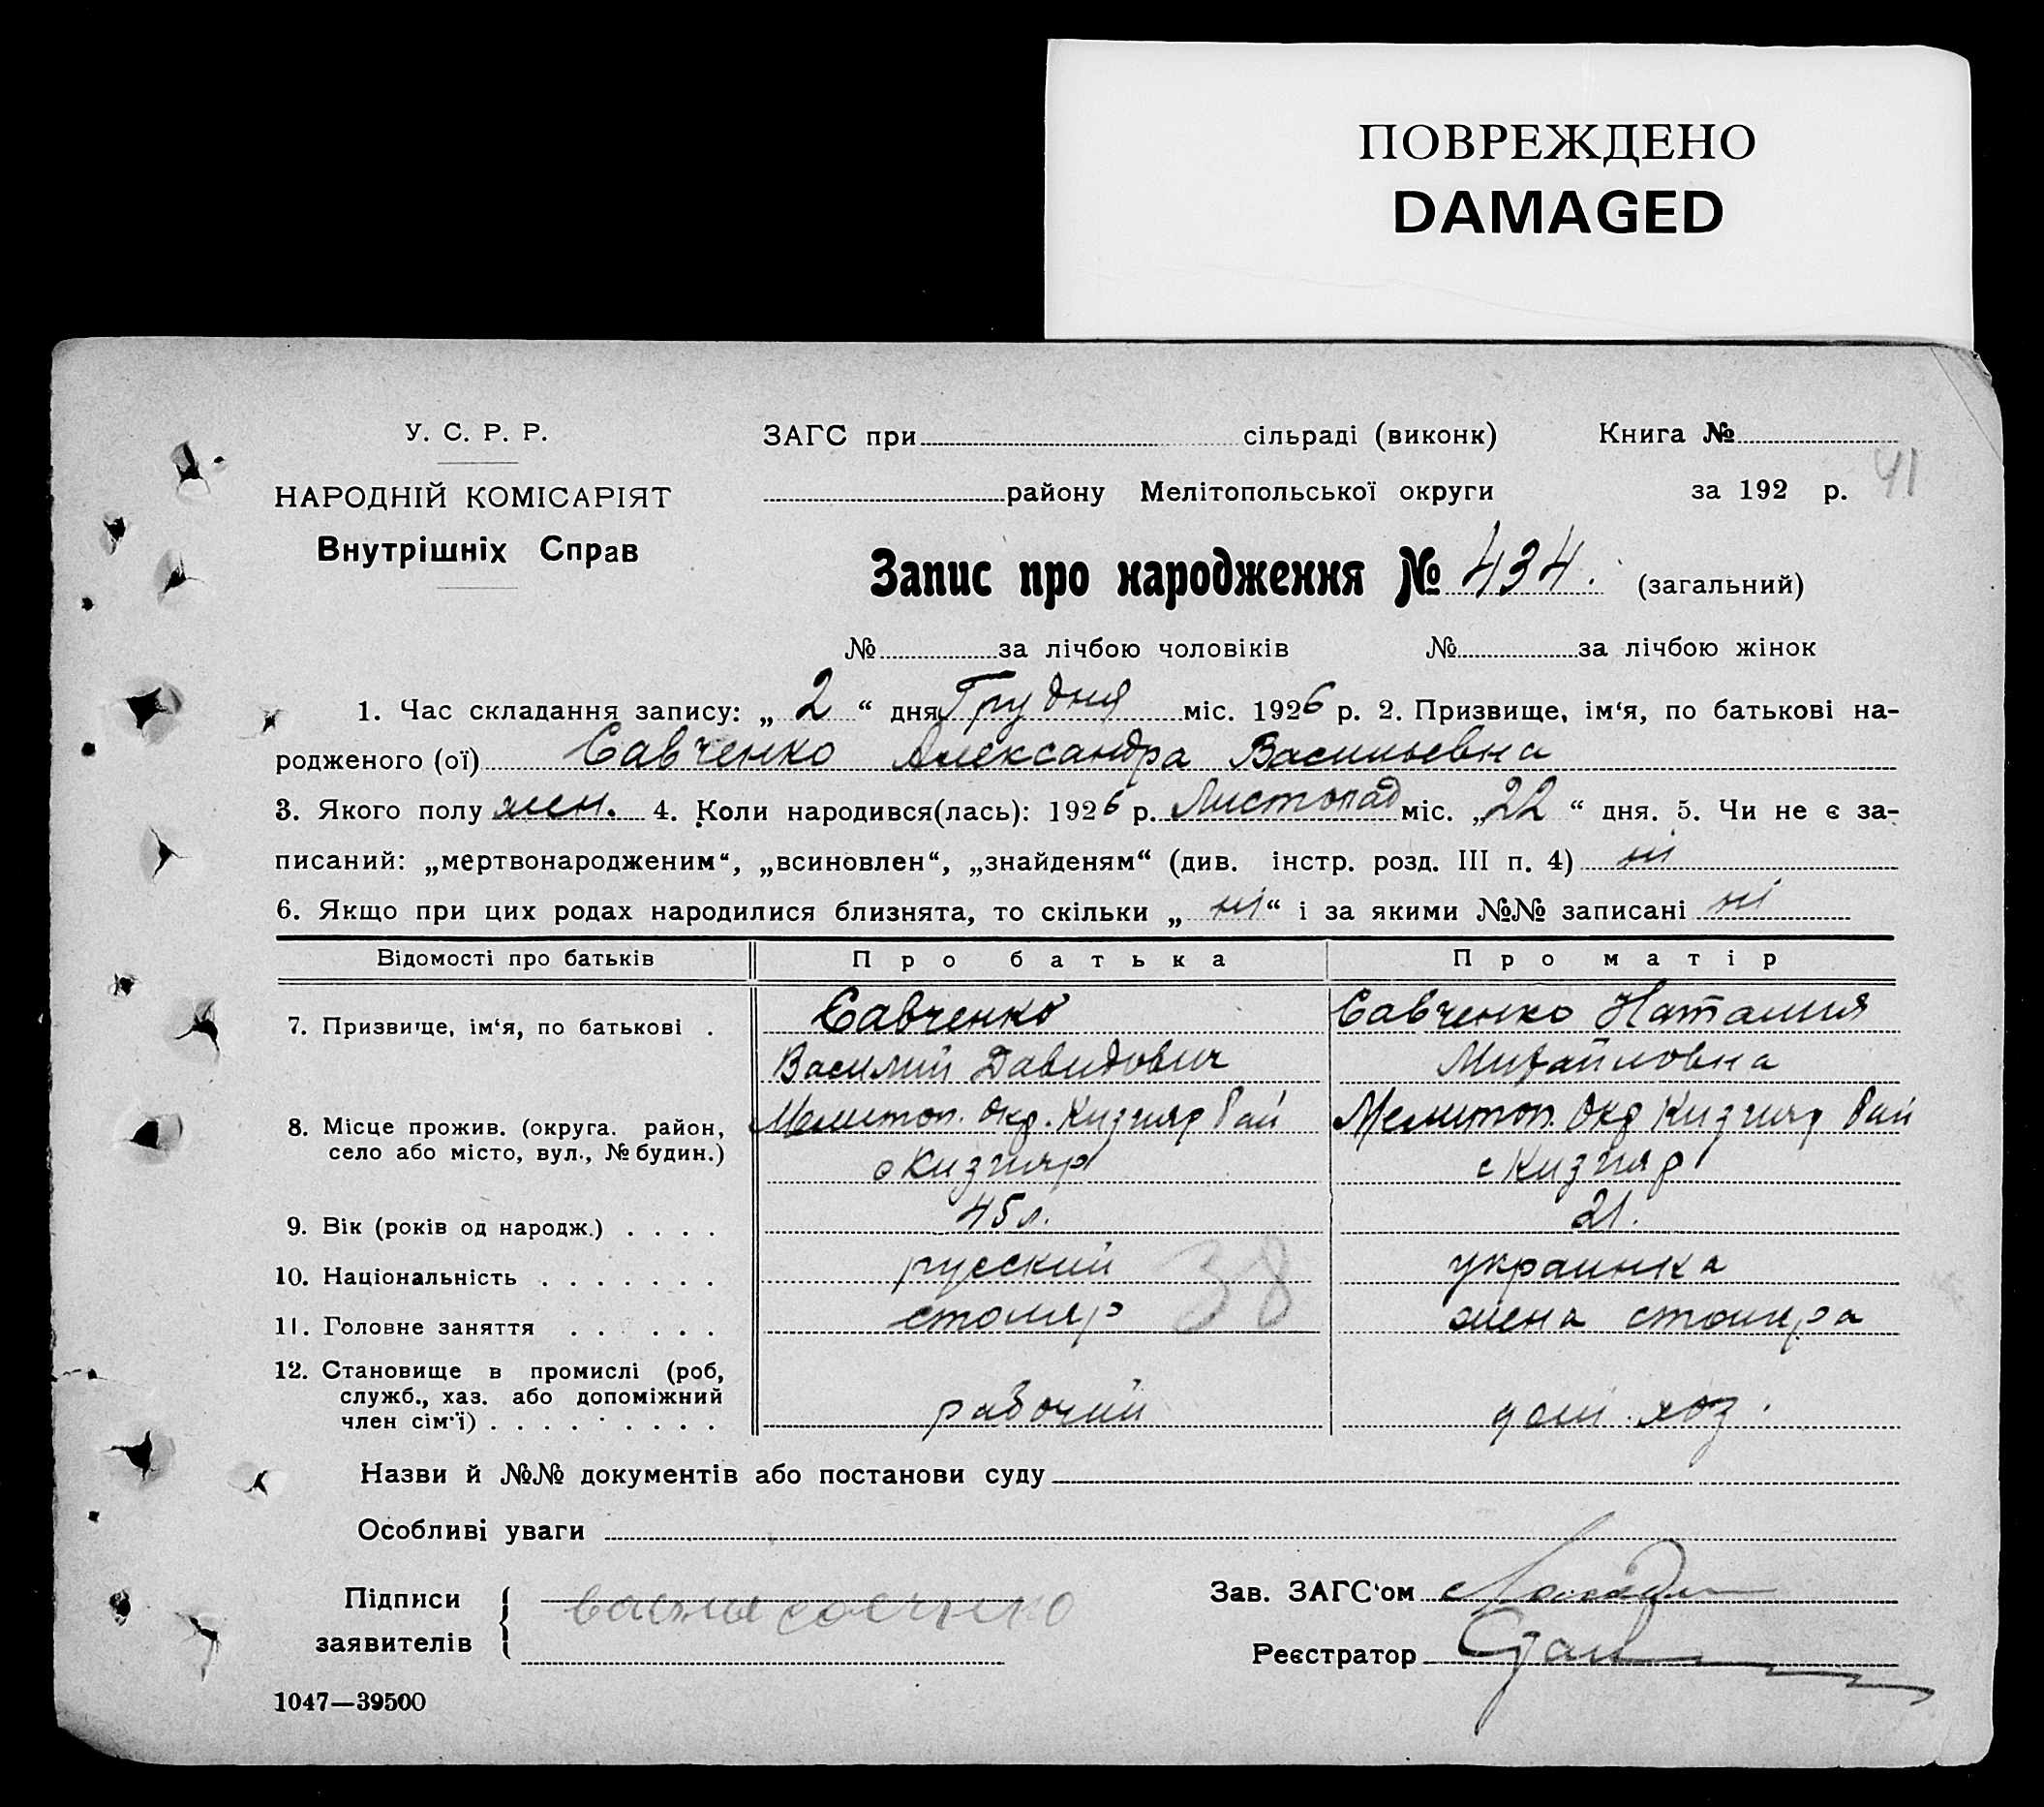 ПОВРЕЖДЕНО
DAMAGED
У. С. Р. Р.
НАРОДНІЙ КОМІСАРІЯТ
Внутрішніх Справ
ЗАГС при сільраді (виконк) Книга №
району Мелітопольської округи за 192 р. 41
Запис про народження № 434. (загальний)
№ за лічбою чоловіків № за лічбою жінок
1. Час складання запису: „ 2 “ дня Грудня міс. 1926 р. 2. Призвище, ім‘я, по батькові на-
родженого (ої) Савченко Александра Васильевна
3. Якого полу жен. 4. Коли народився(лась): 1926 р. Листопад міс. „22 “ дня. 5. Чи не є за-
писаний: „мертвонародженим“, „всиновлен“, „знайденям“ (див. інстр. розд. III п. 4) ні
6. Якщо при цих родах народилися близнята, то скільки „ ні “ і за якими №№ записані ні
Відомості про батьків Про батька Про матір
7. Призвище, ім‘я, по батькові . Савченко Савченко Наталия
Василий Давидович Михайловна
8. Місце прожив. (округа. район, Мелитоп. Окр. Кизияр Рай Мелитоп. Окр Кизияр Рай
село або місто, вул., № будин.) с Кизияр с Кизияр
9. Вік (років од народж.) . . . . 45 л. 21.
10. Національність . . . . . . . русский украинка
38
11. Головне заняття . . . . . . столяр жена столяра
12. Становище в промислі (роб,
служб., хаз. або допоміжний
член сім‘ї) . . . . . . . . . рабочий дом. хоз.
Назви й №№ документів або постанови суду
Особливі уваги
Підписи
заявителів
Зав. ЗАГС‘ом
Реєстратор
1047—39500